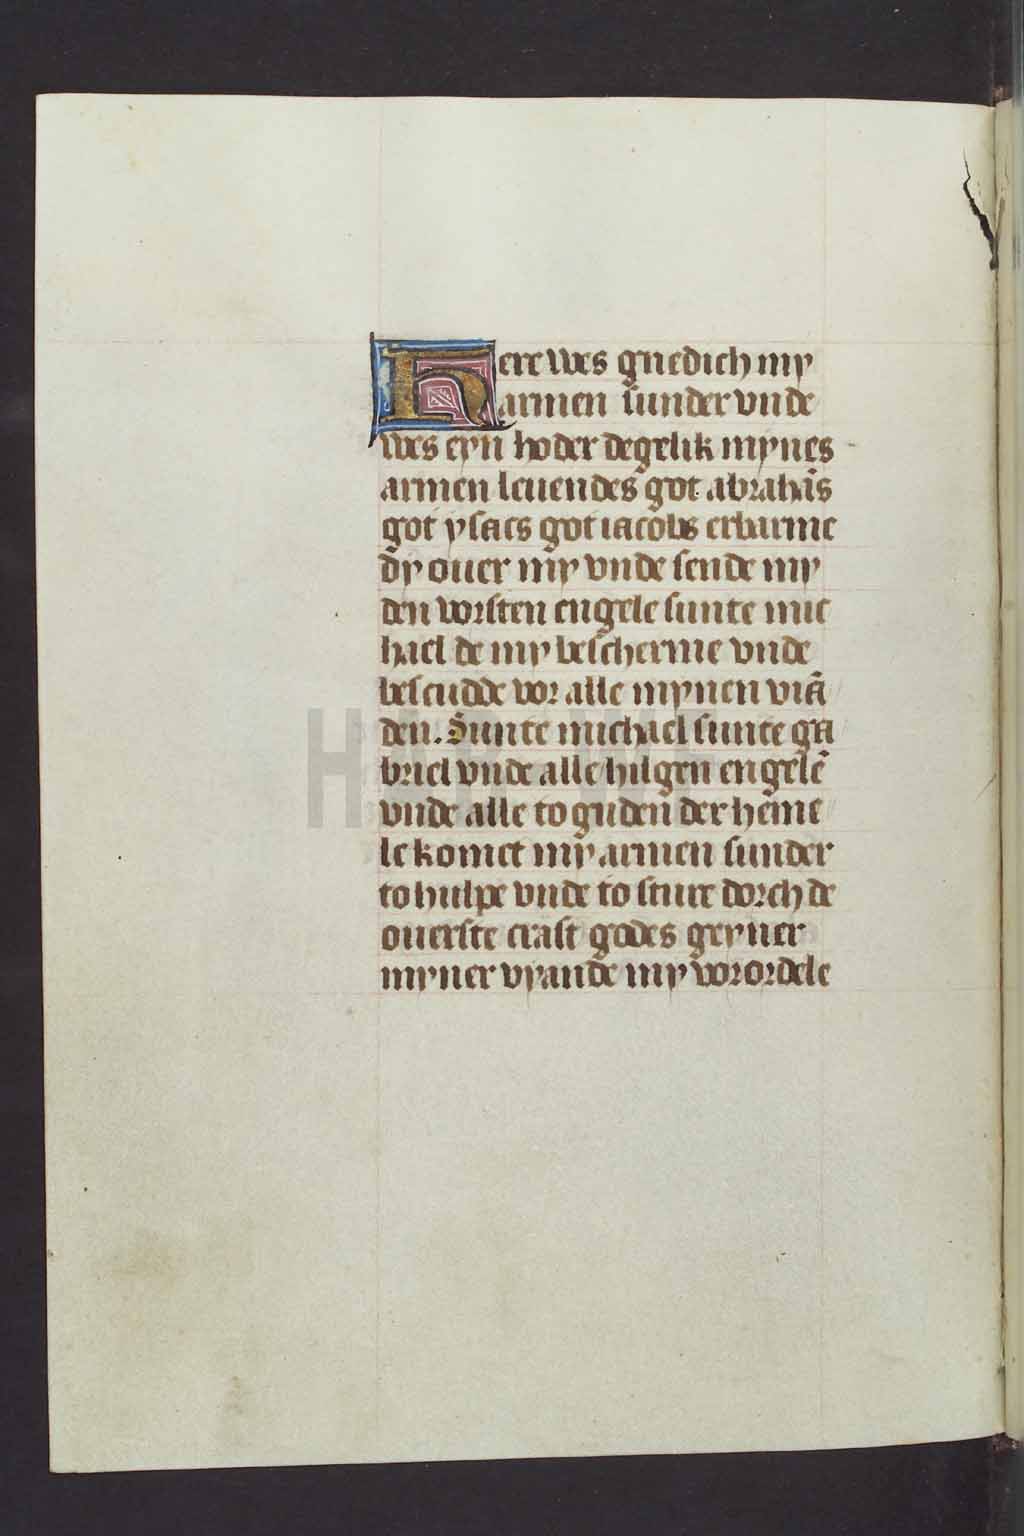 Here wes gnedich my
armen sunder vnde
wes eyn hoder degelik mynes
armen leuendes got abrahā̄s
got ysacs got iacobs erbarme
dy ouer my vnde sende my
den vorsten engele sunte mic
hael de my bescherme vnde
bescudde vor alle mynen viā
den. Sunte michael sunte ga
briel vnde alle hilgen engelē
vnde alle to guden der heme
le komet my armen sunder
to hulpe vnde to sture dorch de
ouerste craft godes geyner
myner vyande my vorordele